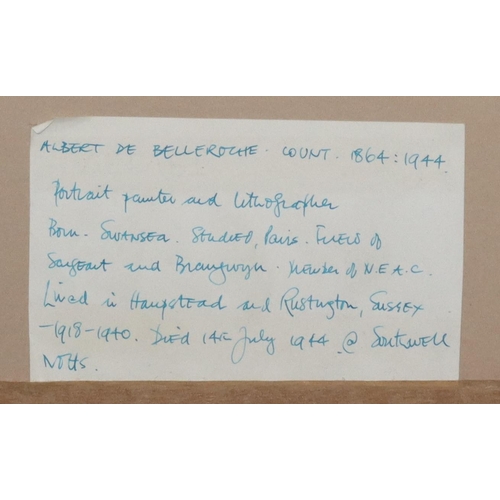 ALBERT DE BELLEROCHE. COUNT. 1864:1944.
Portrait painter and lithographer
Born. SWANSEA. STUDIED, Paris. FRIEND of
Sargeant and Brangwyn. Member of N.E.A.C.
Lived in Hampstead and Rustington, SUSSEX
-1918-1940. Died 14th July 1944 @ Southwell
NOTTS.